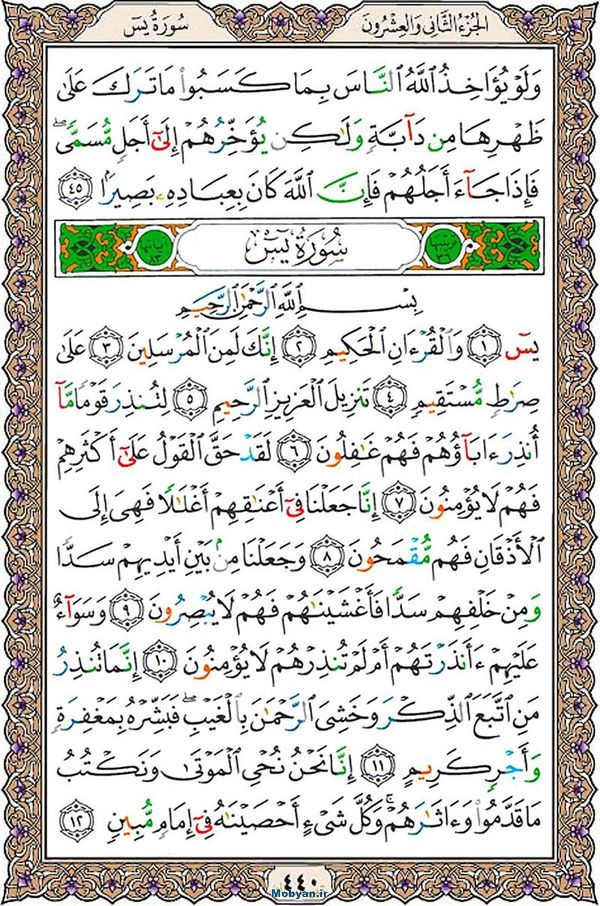 الجُزءُ الثَّانِی وَالعِشرُونَ
سُورَةُ یسٓ
وَلَوْ يُؤَاخِذُ ٱللَّهُ ٱلنَّاسَ بِمَا كَسَبُوا۟ مَا تَرَكَ عَلَىٰ
ظَهْرِهَا مِن دَآبَّةٍ وَلَـٰكِن يُؤَخِّرُهُمْ إِلَىٰٓ أَجَلٍ مُّسَمًّى ۖ
فَإِذَا جَآءَ أَجَلُهُمْ فَإِنَّ ٱللَّهَ كَانَ بِعِبَادِهِۦ بَصِيرًۢا ٤٥
سُورَةُ يسٓ
بِسْمِ ٱللَّهِ ٱلرَّحْمَـٰنِ ٱلرَّحِيمِ
يسٓ ١ وَٱلْقُرْءَانِ ٱلْحَكِيمِ ٢ إِنَّكَ لَمِنَ ٱلْمُرْسَلِينَ ٣ عَلَىٰ
صِرَٰطٍ مُّسْتَقِيمٍ ٤ تَنزِيلَ ٱلْعَزِيزِ ٱلرَّحِيمِ ٥ لِتُنذِرَ قَوْمًا مَّآ
أُنذِرَ ءَابَآؤُهُمْ فَهُمْ غَـٰفِلُونَ ٦ لَقَدْ حَقَّ ٱلْقَوْلُ عَلَىٰٓ أَكْثَرِهِمْ
فَهُمْ لَا يُؤْمِنُونَ ٧ إِنَّا جَعَلْنَا فِىٓ أَعْنَـٰقِهِمْ أَغْلَـٰلًا فَهِىَ إِلَى
ٱلْأَذْقَانِ فَهُم مُّقْمَحُونَ ٨ وَجَعَلْنَا مِنۢ بَيْنِ أَيْدِيهِمْ سَدًّا
وَمِنْ خَلْفِهِمْ سَدًّا فَأَغْشَيْنَـٰهُمْ فَهُمْ لَا يُبْصِرُونَ ٩ وَسَوَآءٌ
عَلَيْهِمْ ءَأَنذَرْتَهُمْ أَمْ لَمْ تُنذِرْهُمْ لَا يُؤْمِنُونَ ١٠ إِنَّمَا تُنذِرُ
مَنِ ٱتَّبَعَ ٱلذِّكْرَ وَخَشِىَ ٱلرَّحْمَـٰنَ بِٱلْغَيْبِ ۖ فَبَشِّرْهُ بِمَغْفِرَةٍ
وَأَجْرٍ كَرِيمٍ ١١ إِنَّا نَحْنُ نُحْىِ ٱلْمَوْتَىٰ وَنَكْتُبُ
مَا قَدَّمُوا۟ وَءَاثَـٰرَهُمْ ۚ وَكُلَّ شَىْءٍ أَحْصَيْنَـٰهُ فِىٓ إِمَامٍ مُّبِينٍ ١٢
٤٤٠
Mobyan.ir